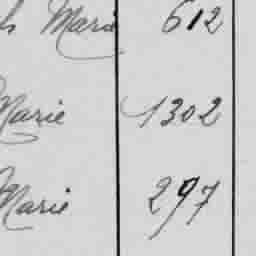 Marie 612
Marie 1302
Marie 297